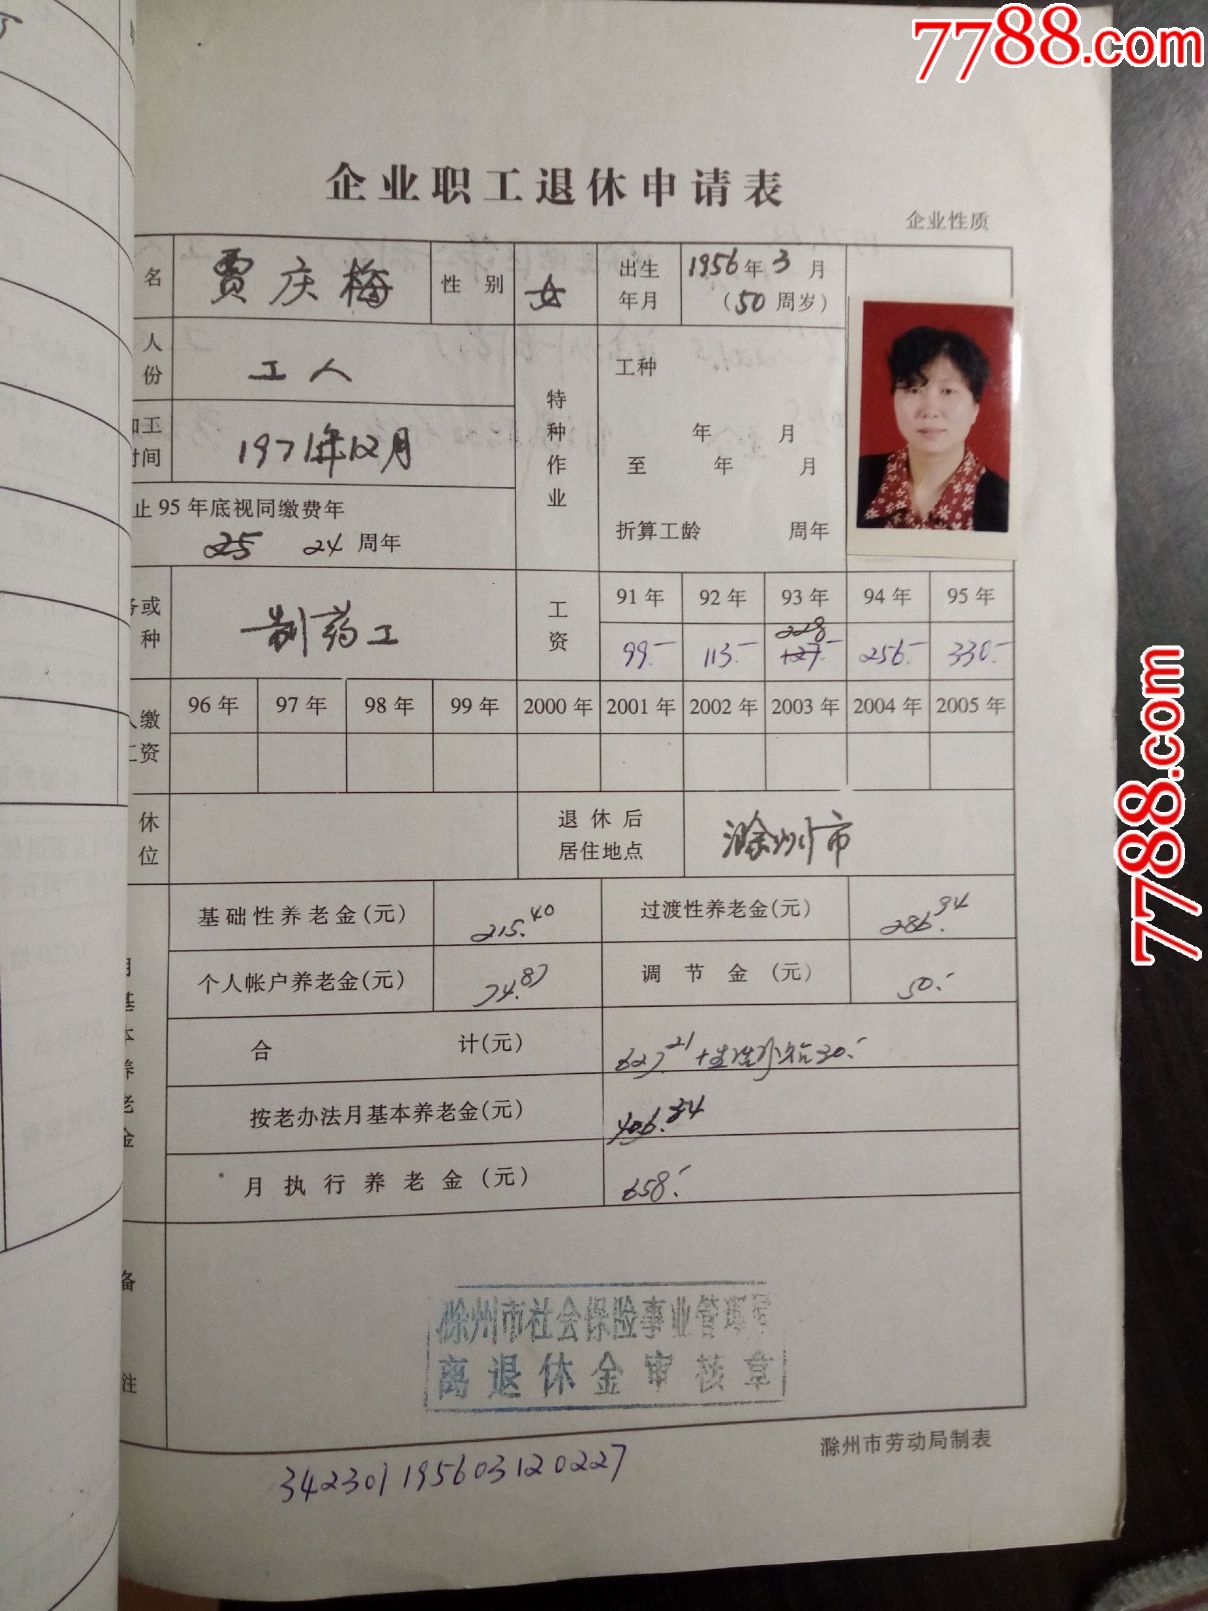 7788.com
企业职工退休申请表
企业性质
名 贾庆梅 性别 女 出生年月 1956年3月（50周岁）
人份 工人 特种作业 工种
年 月
至 年 月
加工时间 1971年12月
止95年底视同缴费年
25 24 周年
折算工龄 周年
务或种 制药工 工资 91年 92年 93年 94年 95年
99.- 113.- 228 127.- 256.- 330.-
人缴工资 96年 97年 98年 99年 2000年 2001年 2002年 2003年 2004年 2005年
休位 退休后居住地点 滁州市
月基本养老金
基础性养老金(元) 215.40 过渡性养老金(元) 286.94
个人帐户养老金(元) 74.87 调节金(元) 50.-
合计(元) 627.21+生活补贴30.-
按老办法月基本养老金(元) 406.34
月执行养老金(元) 658.-
备注
滁州市社会保险事业管理局
离退休金审核章
滁州市劳动局制表
342301195603120227
7788.com